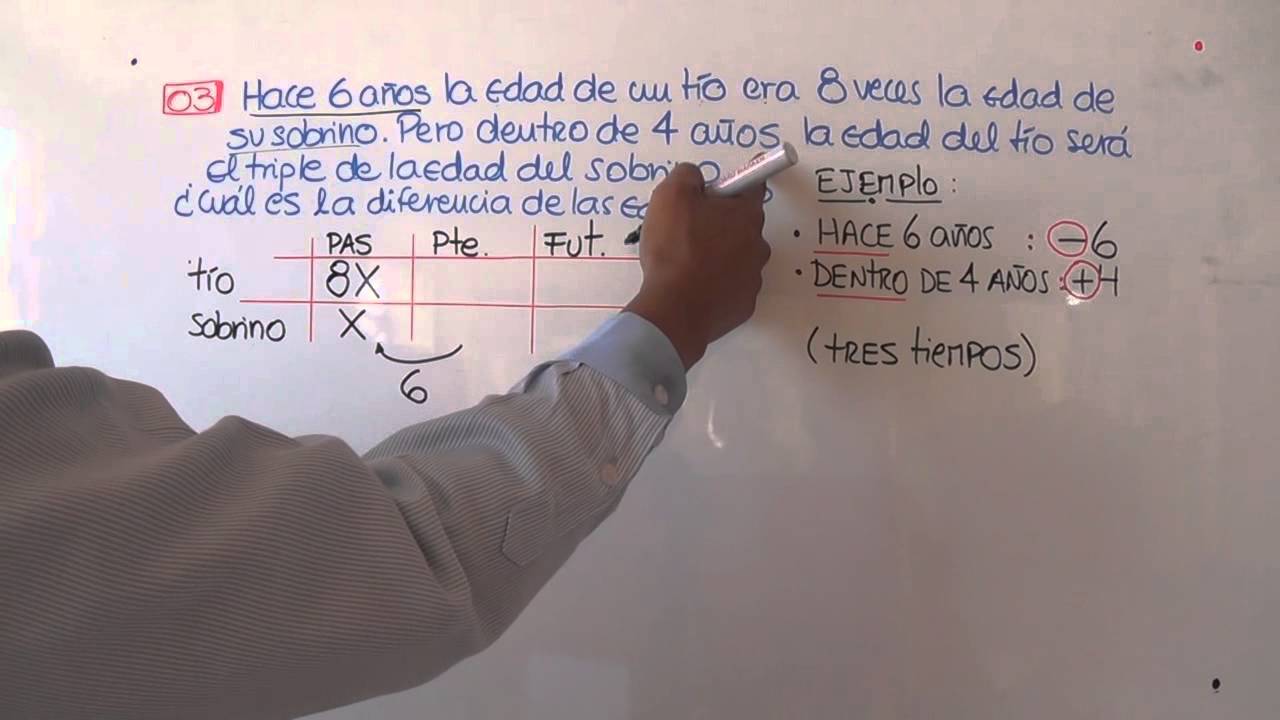 03 Hace 6 años la edad de un tío era 8 veces la edad de
su sobrino. Pero dentro de 4 años, la edad del tío será
el triple de la edad del sobrino
¿Cuál es la diferencia de las
EJEMPlo:
• HACE 6 años : -6
• DENTRO DE 4 AÑOS: +4
(TRES tiEMPOS)
PAS Pte. Fut.
tío 8X
sobrino X
6